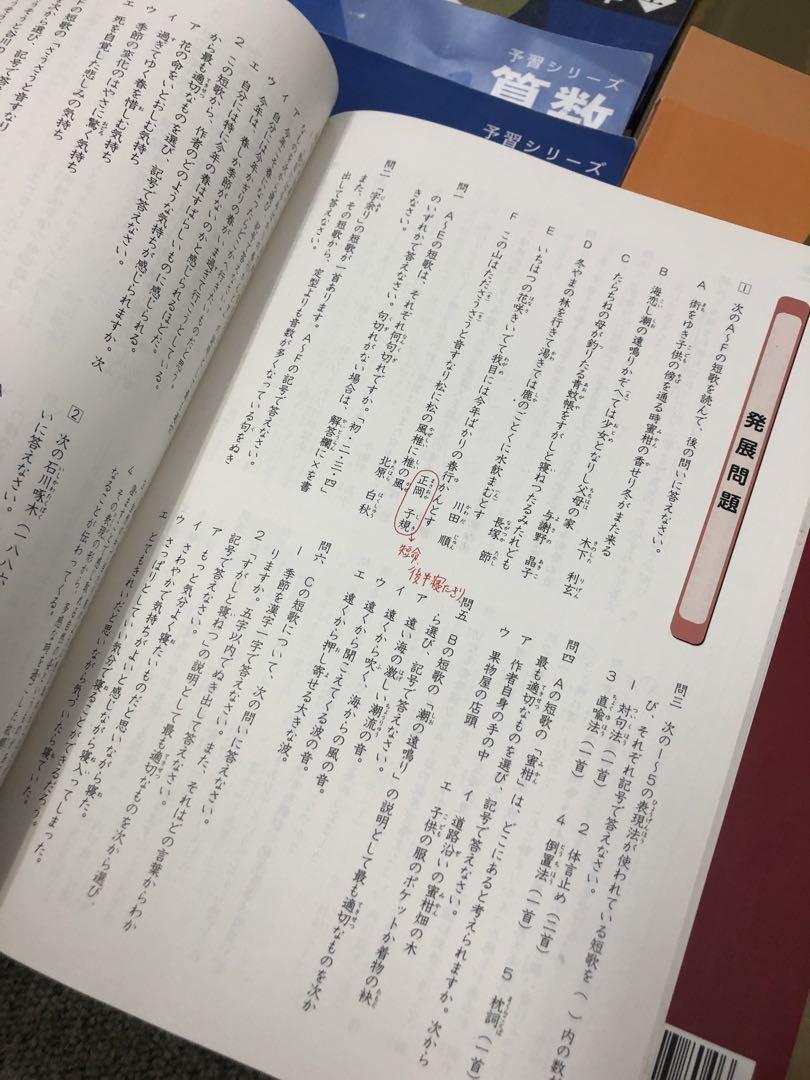 予習シリーズ
算数
予習シリーズ
発展問題
1 次のA〜Fの短歌を読んで、後の問いに答えなさい。
A 街をゆき子供の傍を通る時蜜柑の香せり冬がまた来る
木下 利玄
B 海恋し潮の遠鳴りかぞへては少女となりし父母の家
与謝野 晶子
C たらちねの母が釣りたる青蚊帳をすがしと寝ねつたるみたれども
長塚 節
D 冬やまの林を行きて渇きては鹿のごとくに水飲まむとす
川田 順
E いちはつの花咲きいでて我目には今年ばかりの春行かんとす
正岡 子規
短命
後半寝たきり
F この山はたださうさうと音すなり松に松の風椎に椎の風
北原 白秋
問一 A〜Eの短歌は、それぞれ何句切れですか。「初・二・三・四」
のいずれかで答えなさい。句切れがない場合は、解答欄に×を書
きなさい。
問二 「字余り」の短歌が一首あります。A〜Fの記号で答えなさい。
また、その短歌から、定型よりも音数が多くなっている句をぬき
出して答えなさい。
問三 次の1〜5の表現法が使われている短歌を（ ）内の数
び、それぞれ記号で答えなさい。
1 対句法（一首） 2 体言止め（二首）
3 直喩法（一首） 4 倒置法（一首） 5 枕詞（一首
問四 Aの短歌の「蜜柑」は、どこにあると考えられますか。次から
最も適切なものを選び、記号で答えなさい。
ア 作者自身の手の中 イ 道路沿いの蜜柑畑の木
ウ 果物屋の店頭 エ 子供の服のポケットか着物の袂
問五 Bの短歌の「潮の遠鳴り」の説明として最も適切なものを次か
ら選び、記号で答えなさい。
ア 遠い海の激しい潮流の音。
イ 遠くから吹く、海からの風の音。
ウ 遠くから聞こえてくる波の音。
エ 遠くから押し寄せる大きな波。
問六 Cの短歌について、次の問いに答えなさい。
1 季節を漢字一字で答えなさい。また、それはどの言葉からわか
りますか。五字以内でぬき出して答えなさい。
2 「すがしと寝ねつ」の説明として最も適切なものを次から選び、
記号で答えなさい。
ア もっと気分よく寝たいものだと思いながら寝た。
イ さわやかで気持ちがよいと感じながら寝入ってしまった。
ウ とてもよい気分で寝ることができるだろう
2 この短歌から、作者のどのような気持ちが感じられますか。次
から最も適切なものを選び、記号で答えなさい。
ア 花の命をいとおしむ気持ち
イ 過ぎてゆく春を惜しむ気持ち
ウ 季節の変化のはやさに驚く気持ち
エ 死を自覚した悲しみの気持ち
Fの短歌の「さうさうと音すなり
2 次の石川啄木（一八八六
いに答えなさい。